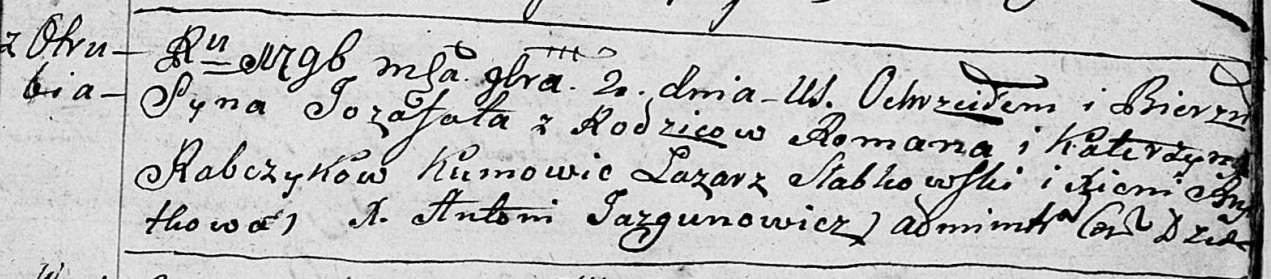 z Otru-
bia-
Ru 1796 msa. 9bra. 2. dnia Us. Ochrzciłem i Bierzm
Syna Jozafata z Rodzicow Romana i Katerzyny
Rabczykow Kumowie Łazarz Słabkowski i Xieni
tkowa X. Antoni Jazgunowicz admintr Cer Dzie